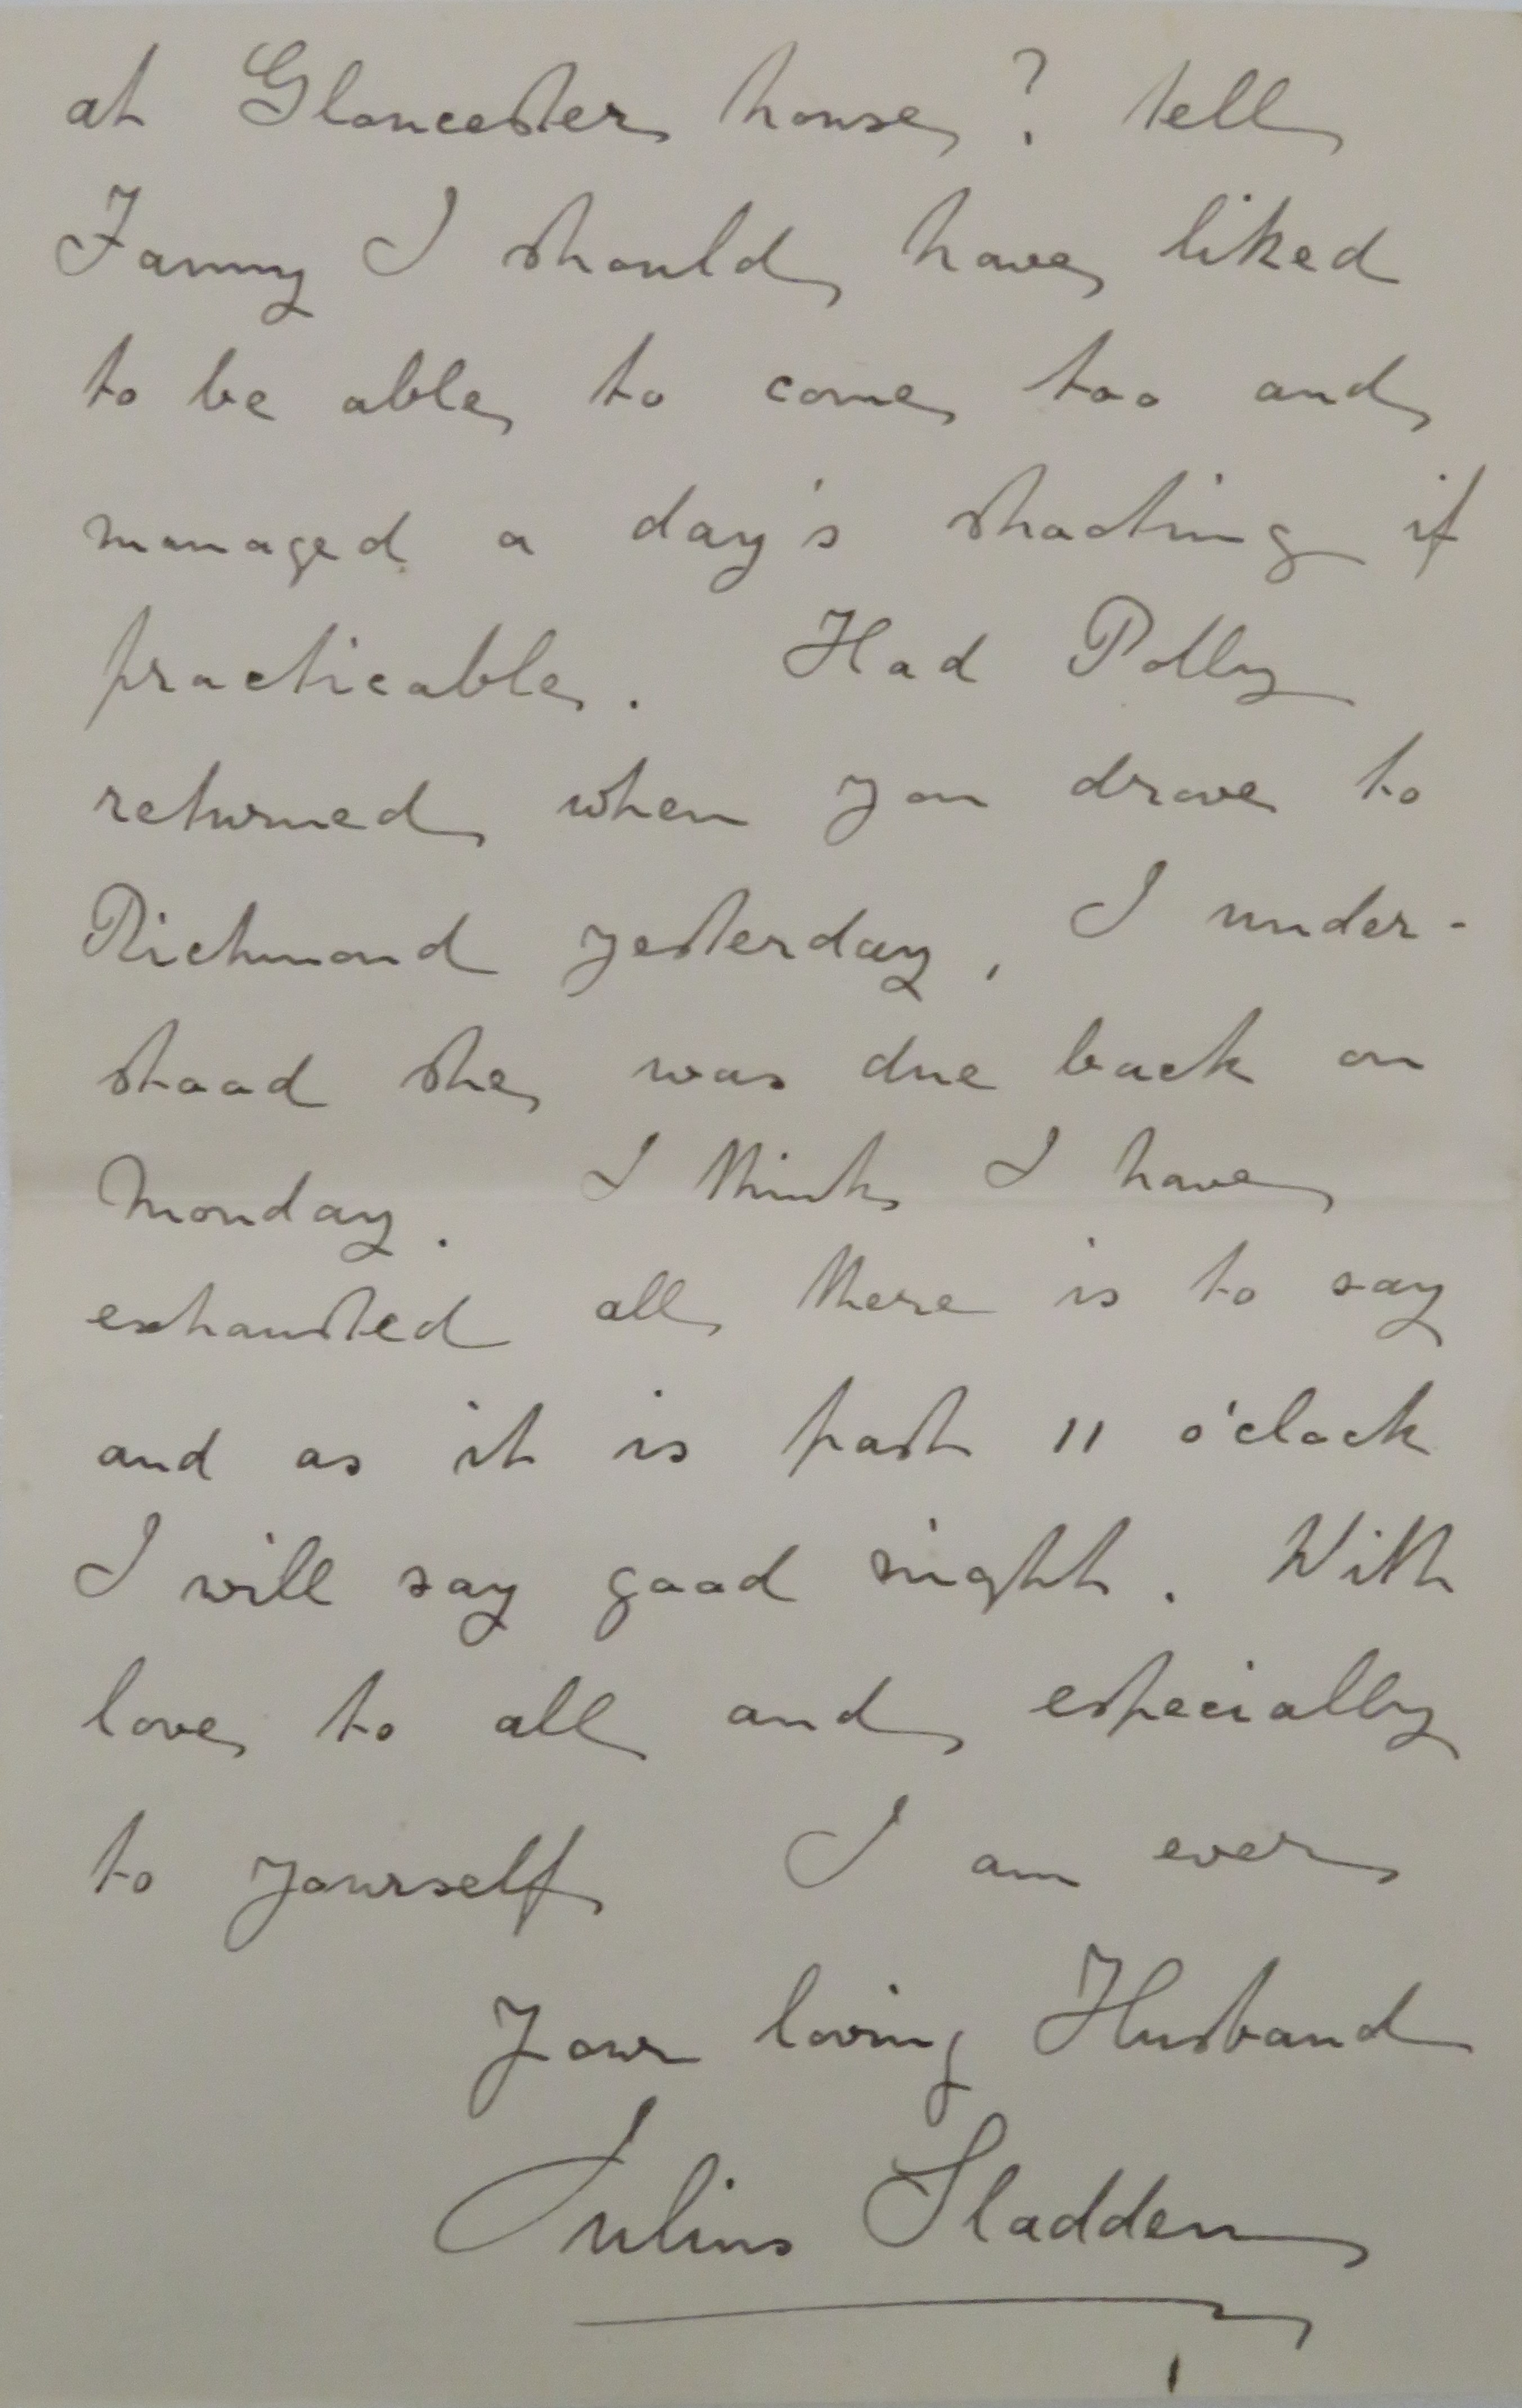 at Gloucester house? tell
Fanny I should have liked
to be able to come too and
managed a day's shooting if
practicable. Had Polly
returned when you drove to
Richmond yesterday, I under-
stood she was due back on
Monday. I think I have
exhausted all there is to say
and as it is past 11 o'clock
I will say good night. With
love to all and especially
to yourself I am ever
Your loving Husband
Julius Sladden